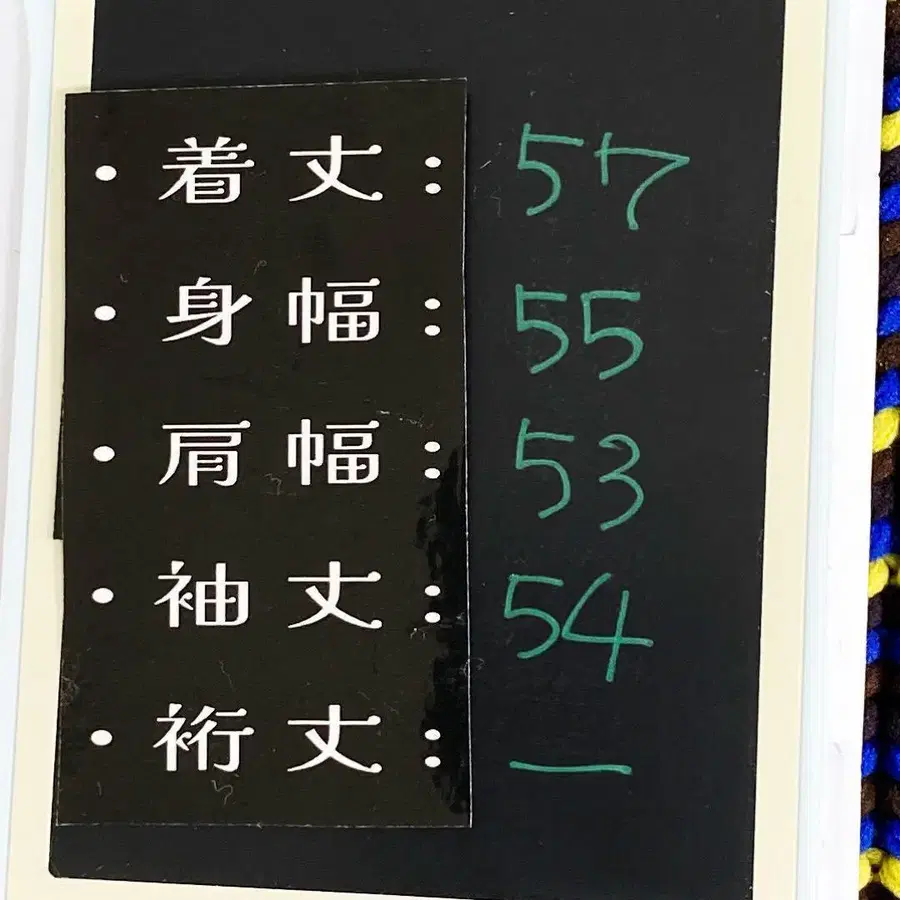 ・着丈：57
・身幅：55
・肩幅：53
・袖丈：54
・裄丈：—